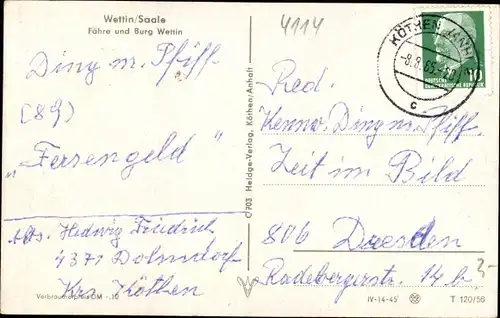 Wettin/Saale
Fähre und Burg Wettin
4114
KÖTHEN (ANH)
-8.8.65
c
10
DEUTSCHE
DEMOKRATISCHE REPUBLIK
Ding m. Pfiff
(89)
„Fersengeld"
Abs. Hedwig Friedrich
4371 Dohndorf
Krs. Köthen
Red.
Kennw. Ding m. Pfiff.
Zeit im Bild
806 Dresden
Radebergerstr. 14 b
C 703 Heldge-Verlag, Köthen/Anhalt
Verbraucherpreis DM -,10
IV-14-45
T 120/56